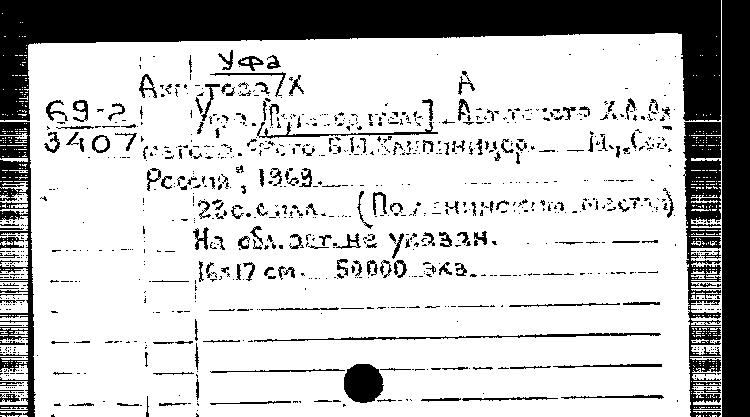 Уфа
Ахметова/Х А
69-2 Уфа. [Путеводитель]. Авт. текста Х.А. Ах
3407 метова. Фото Б.П. Клипиницер. М., "Сов.
Россия", 1969.
23 с. с илл. (По ленинским местам)
На обл. авт. не указан.
16×17 см. 50000 экз.